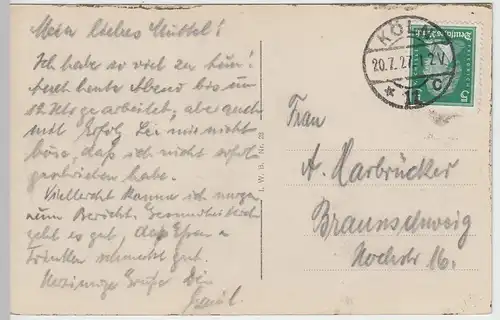 Mein liebes Muttel!
Ich habe so viel zu tun!
Auch heute Abend bis um
gearbeitet, aber auch
mit Erfolg. Sei mir nicht
böse, daß ich nicht sofort
geschrieben habe.
Vielleicht kann ich morgen
zum Bericht. Gesundheitlich
geht es gut, das Essen u
Trinken schmeckt gut.
Herzinnige Grüße Dein
I. W. B. Nr. 22
KÖLN
20.7.27
11
c
Deutsches Reich
5
Frau
A. Harbrücker
Braunschweig
16.